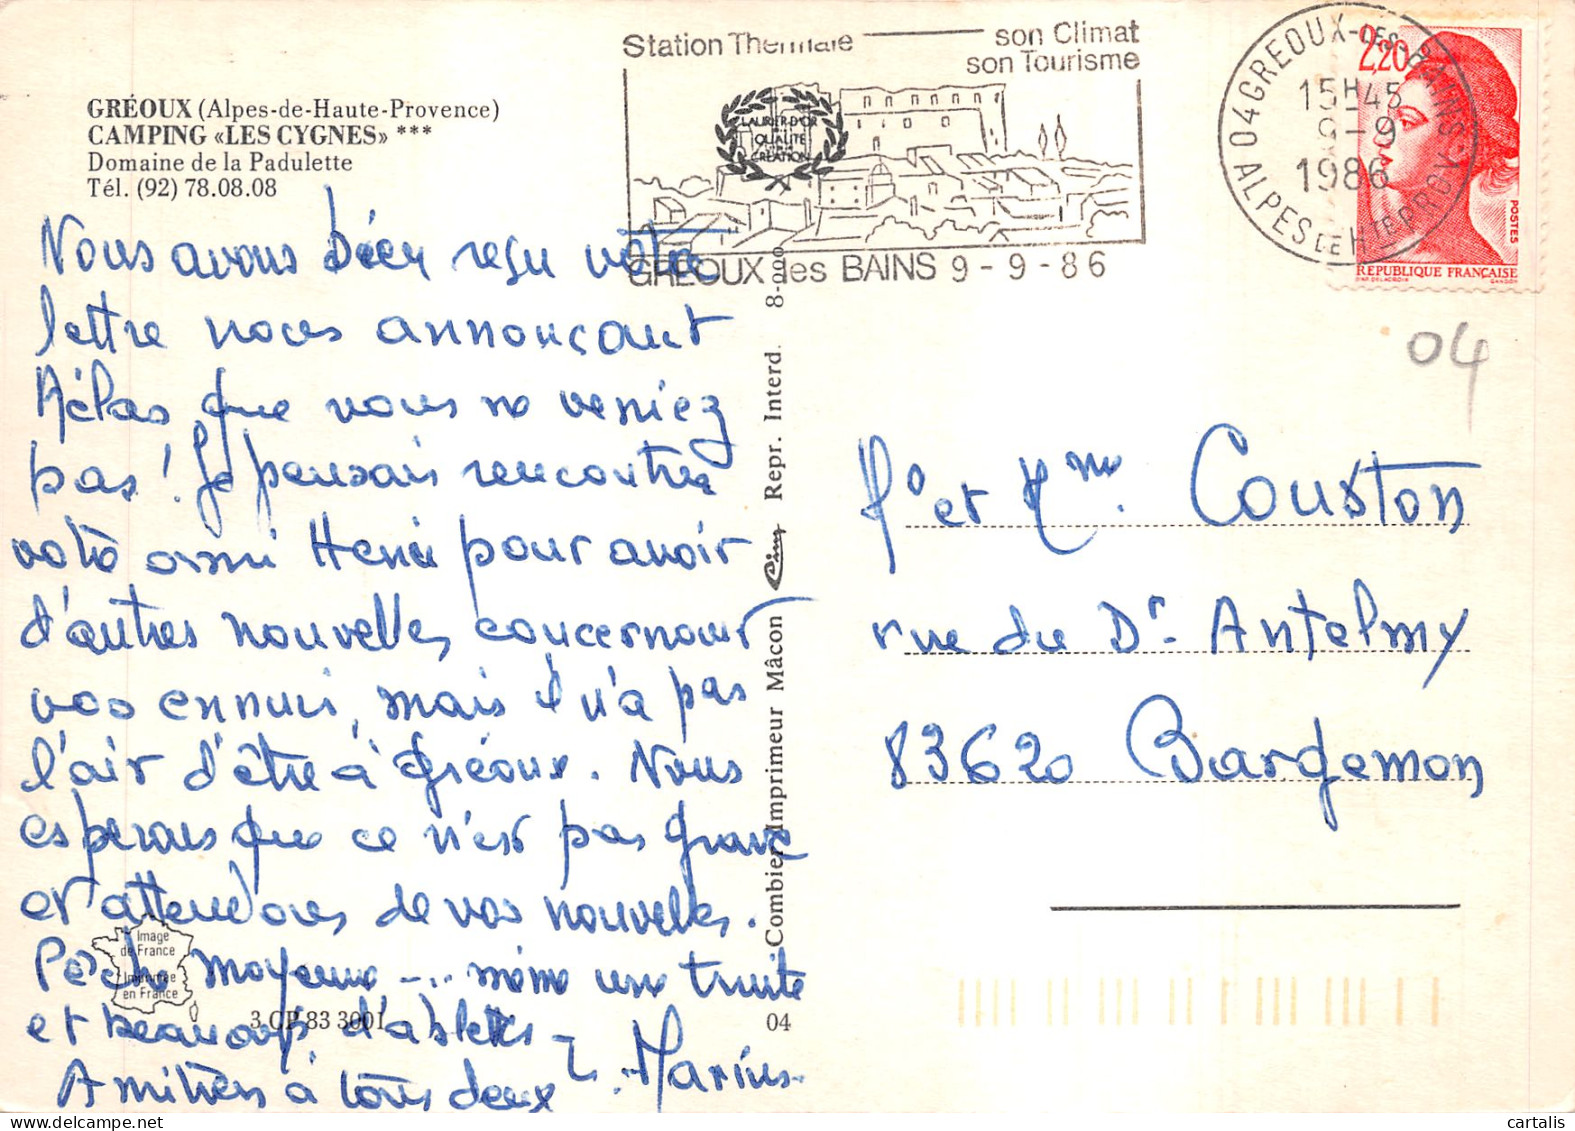 GRÉOUX (Alpes-de-Haute-Provence)
CAMPING «LES CYGNES» ***
Domaine de la Padulette
Tél. (92) 78.08.08
Nous avons bien reçu votre
lettre nous annonçant
hélas que vous ne veniez
pas! Je pensais rencontrer
votre ami Henri pour avoir
d'autres nouvelles concernant
vos ennuis, mais il n'a pas
l'air d'être à Gréoux. Nous
esperons que ce n'est pas grave
et attendons de vos nouvelles.
Pêche moyenne -... même une truite
et beaucoup d'ablettes -
Amitiés à tous deux
Marius
Image
de France
Imprimée
en France
3 CP 83 3001
04
Combier Imprimeur Mâcon Cim Repr. Interd. 8-000
Station Thermale son Climat
son Tourisme
LAURIER D'OR
QUALITÉ
CRÉATION
GREOUX les BAINS 9 - 9 - 86
04 GREOUX-LES-BAINS
15H45
9 - 9
1986
ALPES DE HTE PROV
2,20
POSTES
REPUBLIQUE FRANÇAISE
D'AP. DELACROIX GANDON
04
Mr et Mme Couston
rue du Dr Antelmy
83620 Bargemon